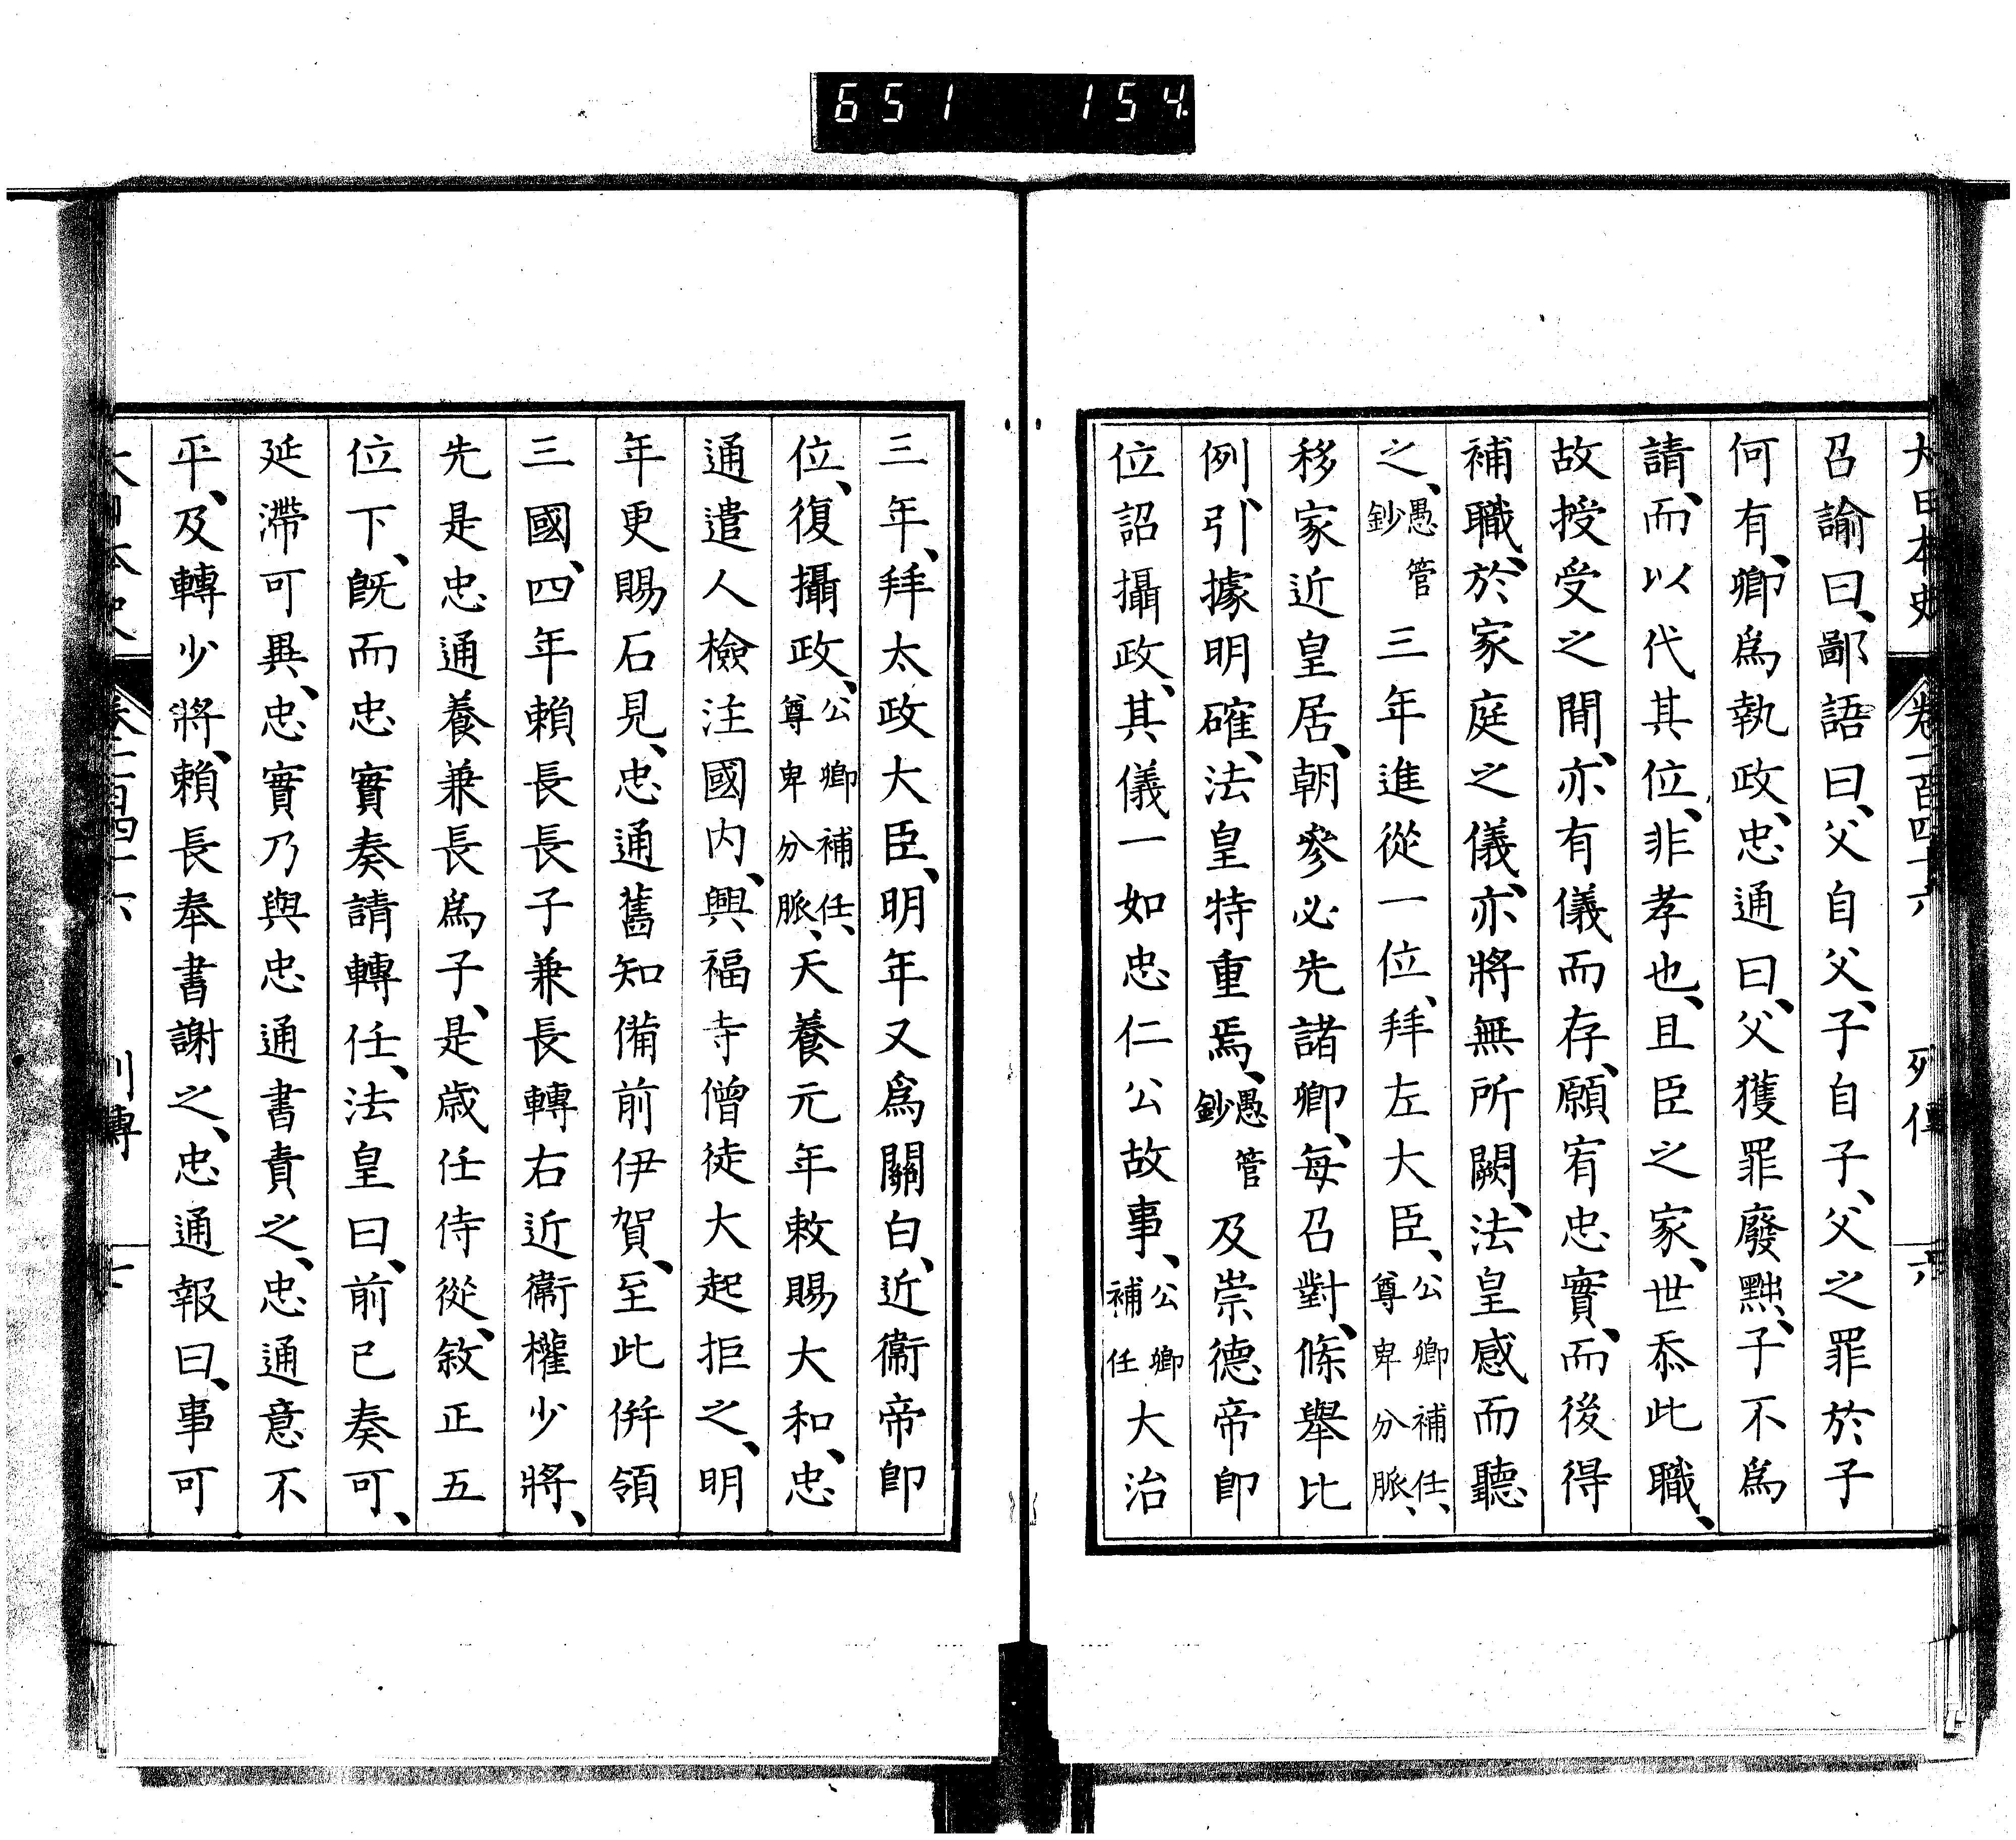 651 154
大日本史 卷一百四十六 列傳 六
召諭曰、鄙語曰、父自父、子自子、父之罪於子
何有、卿爲執政、忠通曰、父獲罪廢黜、子不爲
請、而以代其位、非孝也、且臣之家、世忝此職、
故授受之間、亦有儀而存、願宥忠實、而後得
補職、於家庭之儀、亦將無所闕、法皇感而聽
之、愚管鈔三年進從一位、拜左大臣、公卿補任、尊卑分脈、
移家近皇居、朝參必先諸卿、每召對、條擧比
例、引據明確、法皇特重焉、愚管鈔及崇德帝卽
位詔攝政、其儀一如忠仁公故事、公卿補任大治
三年、拜太政大臣、明年又爲關白、近衞帝卽
位、復攝政、公卿補任、尊卑分脈、天養元年敕賜大和、忠
通遣人檢注國内、興福寺僧徒大起拒之、明
年更賜石見、忠通舊知備前伊賀、至此併領
三國、四年賴長長子兼長轉右近衞權少將、
先是忠通養兼長爲子、是歲任侍從、敘正五
位下、旣而忠實奏請轉任、法皇曰、前已奏可、
延滯可異、忠實乃與忠通書責之、忠通意不
平、及轉少將、賴長奉書謝之、忠通報曰、事可
大日本史 卷一百四十六 列傳 七